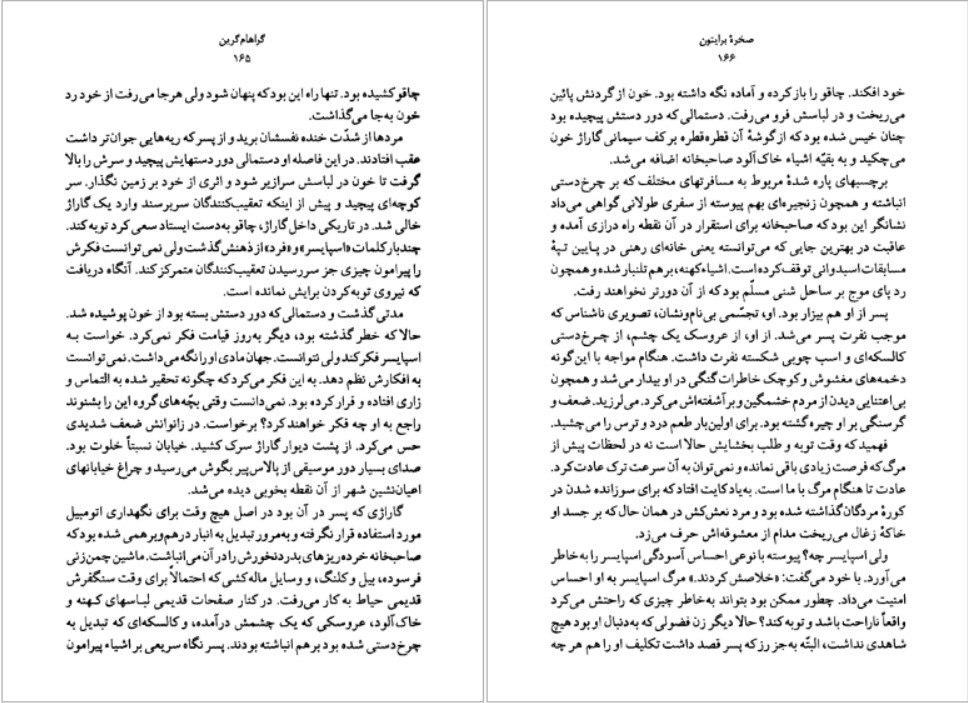 گراهام‌گرین
۱۶۵
چاقو کشیده بود. تنها راه این بود که پنهان شود ولی هرجا می‌رفت از خود رد
خون به‌جا می‌گذاشت.
مردها از شدّت خنده نفسشان برید و از پسر که ریه‌هایی جوان‌تر داشت
عقب افتادند. در این فاصله او دستمالی دور دستهایش پیچید و سرش را بالا
گرفت تا خون در لباسش سرازیر شود و اثری از خود بر زمین نگذار. سر
کوچه‌ای پیچید و پیش از اینکه تعقیب‌کنندگان سربرسند وارد یک گاراژ
خالی شد. در تاریکی داخل گاراژ، چاقو به‌دست ایستاد سعی کرد توبه کند.
چندبار کلمات «اسپایسر» و «فرد» از ذهنش گذشت ولی نمی‌توانست فکرش
را پیرامون چیزی جز سررسیدن تعقیب‌کنندگان متمرکز کند. آنگاه دریافت
که نیروی توبه‌کردن برایش نمانده است.
مدتی گذشت و دستمالی که دور دستش بسته بود از خون پوشیده شد.
حالا که خطر گذشته بود، دیگر به‌روز قیامت فکر نمی‌کرد. خواست به
اسپایسر فکر کند ولی نتوانست. جهان مادی او را نگه می‌داشت. نمی‌توانست
به افکارش نظم دهد. به این فکر می‌کرد که چگونه تحقیر شده به التماس و
زاری افتاده و فرار کرده بود. نمی‌دانست وقتی بچّه‌های گروه این را بشنوند
راجع به او چه فکر خواهند کرد؟ برخواست. در زانوانش ضعف شدیدی
حس می‌کرد. از پشت دیوار گاراژ سرک کشید. خیابان نسبتاً خلوت بود.
صدای بسیار دور موسیقی از پالاس‌پیر بگوش می‌رسید و چراغ خیابانهای
اعیان‌نشین شهر از آن نقطه بخوبی دیده می‌شد.
گاراژی که پسر در آن بود در اصل هیچ وقت برای نگهداری اتومبیل
مورد استفاده قرار نگرفته و به‌مرور تبدیل به انبار درهم‌و‌برهمی شده بود که
صاحبخانه خرده‌ریزهای بدردنخورش را در آن می‌انباشت. ماشین چمن‌زنی
فرسوده، بیل و کلنگ، و وسایل ماله‌کشی که احتمالاً برای وقت سنگفرش
قدیمی حیاط به کار می‌رفت. در کنار صفحات قدیمی لباسهای کهنه و
خاک‌آلود، عروسکی که یک چشمش درآمده، و کالسکه‌ای که تبدیل به
چرخ‌دستی شده بود برهم انباشته بودند. پسر نگاه سریعی بر اشیاء پیرامون
صخرهٔ برایتون
۱۶۶
خود افکند. چاقو را باز کرده و آماده نگه داشته بود. خون از گردنش پائین
می‌ریخت و در لباسش فرو می‌رفت. دستمالی که دور دستش پیچیده بود
چنان خیس شده بود که از گوشهٔ آن قطره‌قطره بر کف سیمانی گاراژ خون
می‌چکید و به بقیّه اشیاء خاک‌آلود صاحبخانه اضافه می‌شد.
برچسبهای پاره شدهٔ مربوط به مسافرتهای مختلف که بر چرخ‌دستی
انباشته و همچون زنجیره‌ای بهم پیوسته از سفری طولانی گواهی می‌داد
نشانگر این بود که صاحبخانه برای استقرار در آن نقطه راه درازی آمده و
عاقبت در بهترین جایی که می‌توانسته یعنی خانه‌ای رهنی در پایین تپهٔ
مسابقات اسبدوانی توقف کرده است. اشیاء کهنه، بر هم تلنبار شده و همچون
رد پای موج بر ساحل شنی مسلّم بود که از آن دورتر نخواهند رفت.
پسر از او هم بیزار بود. او، تجسّمی بی‌نام‌ونشان، تصویری ناشناس که
موجب نفرت پسر می‌شد. از او، از عروسک یک چشم، از چرخ‌دستی
کالسکه‌ای و اسب چوبی شکسته نفرت داشت. هنگام مواجه با این‌گونه
دخمه‌های مغشوش و کوچک خاطرات گنگی در او بیدار می‌شد و همچون
بی‌اعتنایی دیدن از مردم خشمگین و برآشفته‌اش می‌کرد. می‌لرزید. ضعف و
گرسنگی بر او چیره گشته بود. برای اولین‌بار طعم درد و ترس را می‌چشید.
فهمید که وقت توبه و طلب بخشایش حالا است نه در لحظات پیش از
مرگ که فرصت زیادی باقی نمانده و نمی‌توان به آن سرعت ترک عادت کرد.
عادت تا هنگام مرگ با ما است. به‌یاد کایت افتاد که برای سوزانده شدن در
کورهٔ مردگان گذاشته شده بود و مرد نعش‌کش در همان حال که بر جسد او
خاکهٔ زغال می‌ریخت مدام از معشوقه‌اش حرف می‌زد.
ولی اسپایسر چه؟ پیوسته با نوعی احساس آسودگی اسپایسر را به‌خاطر
می‌آورد. با خود می‌گفت: «خلاصش کردند.» مرگ اسپایسر به او احساس
امنیت می‌داد. چطور ممکن بود بتواند به‌خاطر چیزی که راحتش می‌کرد
واقعاً ناراحت باشد و توبه کند؟ حالا دیگر زن فضولی که به‌دنبال او بود هیچ
شاهدی نداشت، البتّه به‌جز رز که پسر قصد داشت تکلیف او را هم هر چه